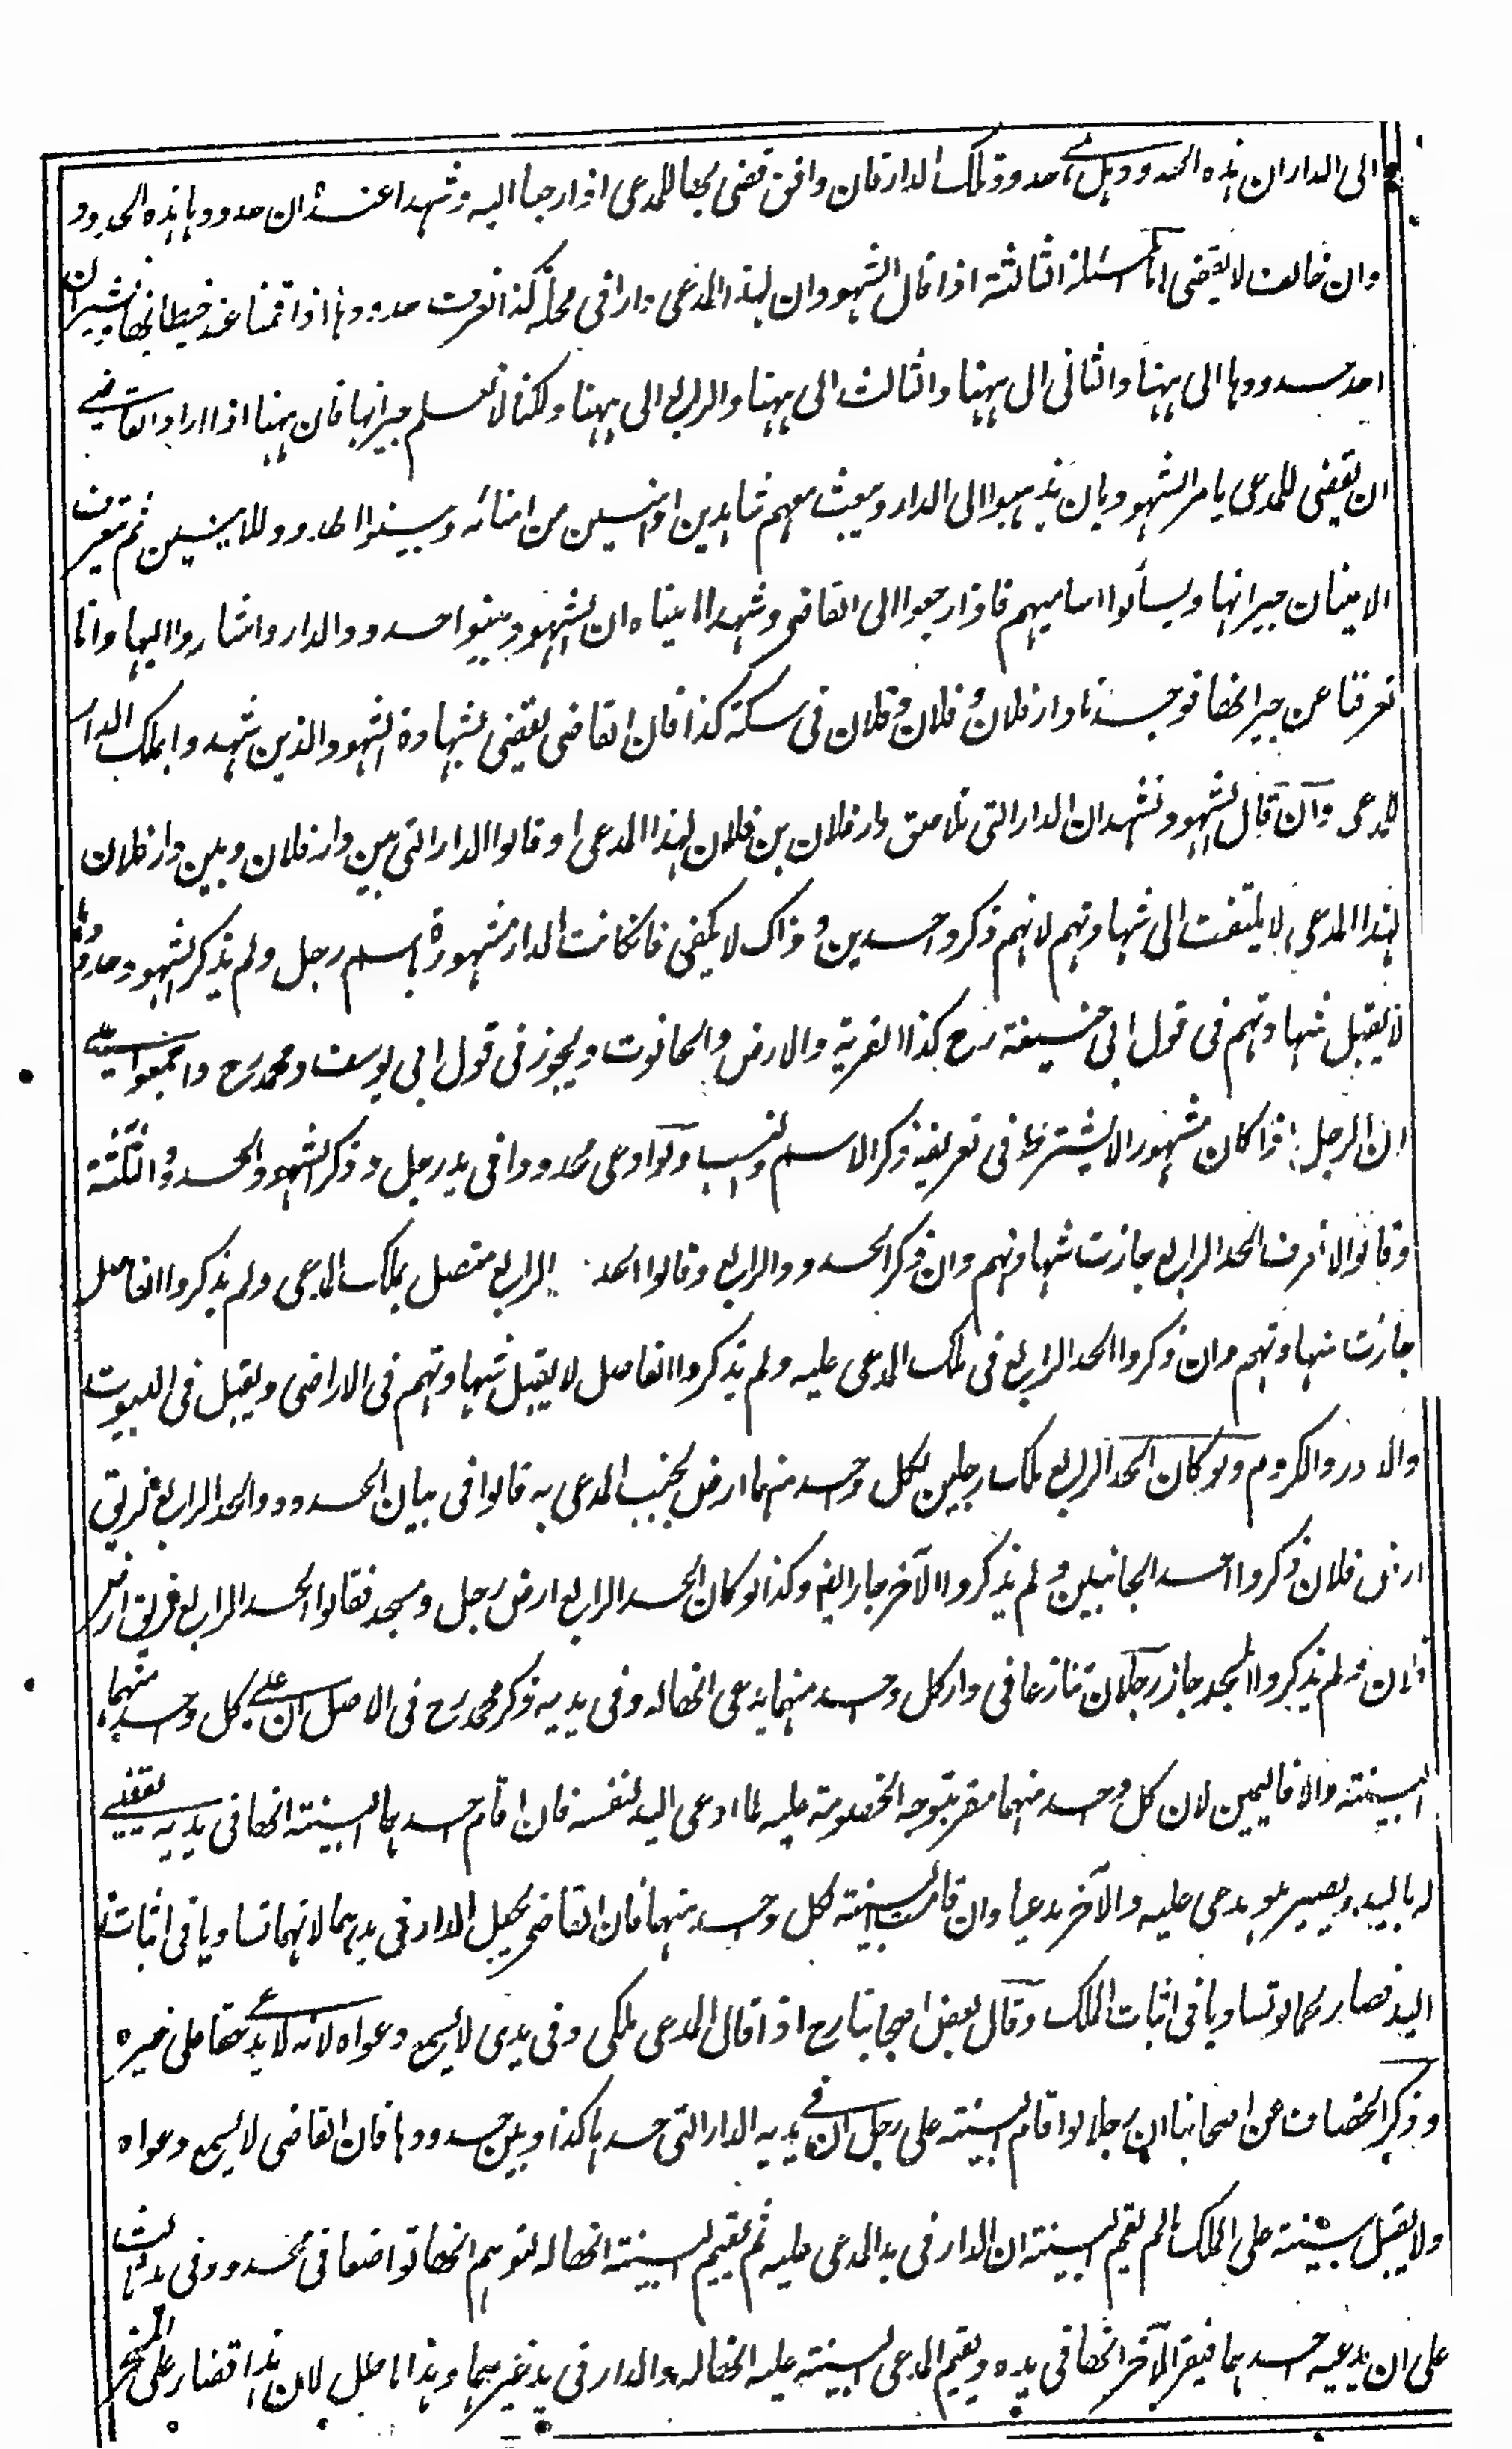 الى الدار ان هذه الحدود هل هى حدود تلك الدار فان وافق قضى بها للمدعى اذا رجعا اليه وشهدا عنده ان حدودها هذه الحدود
وان خالف لا يقضى اما المسئلة الثالثة اذا قال الشهود ان لهذا المدعى دارا فى محلة كذا نعرف حدودها اذا قمنا عند حيطانها نشير ان
احد حدودها الى ههنا والثانى الى ههنا والثالث الى ههنا والرابع الى ههنا ولكنا لا نعلم جيرانها فان ههنا اذا اراد القاضى
ان يقضى للمدعى يامر الشهود بان يذهبوا الى الدار ويبعث معهم شاهدين امينين من امنائه ويبينوا الحدود للامينين ثم يتعرف
الامينان جيرانها ويسألوا اساميهم فاذا رجعوا الى القاضى وشهد اميناه ان الشهود بينوا حدود الدار واشاروا اليها وانا
تعرفنا عن جيرانها فوجدنا دار فلان وفلان وفلان فى سكة كذا فان القاضى يقضى بشهادة الشهود الذين شهدوا بملك الدار
للمدعى وان قال الشهود نشهد ان الدار التى تلاصق دار فلان بن فلان لهذا المدعى او قالوا الدار التى بين دار فلان وبين دار فلان
لهذا المدعى لا يلتفت الى شهادتهم لانهم ذكروا حدين وذاك لا يكفى فان كانت الدار مشهورة باسم رجل ولم يذكر الشهود حدودها
لا يقبل شهادتهم فى قول ابى حنيفة رح كذا القرية والارض والحانوت ويجوز فى قول ابى يوسف ومحمد رح واجمعوا على
ان الرجل اذا كان مشهورا لا يشترط فى تعريفه ذكر الاسم والنسب ولو ادعى محدودا فى يد رجل وذكر الشهود الحدود الثلثة
وقالوا لا نعرف الحد الرابع جازت شهادتهم وان ذكر الحدود الرابع وقالوا الحد الرابع متصل بملك المدعى ولم يذكروا الفاصل
جازت شهادتهم وان ذكروا الحد الرابع فى ملك المدعى عليه ولم يذكروا الفاصل لا يقبل شهادتهم فى الاراضى ويقبل فى البيوت
والادر والكروم ولو كان الحد الرابع ملك رجلين لكل واحد منهما ارض بجنب المدعى به قالوا فى بيان الحدود والحد الرابع لزيق
ارض فلان ذكروا احد الجانبين ولم يذكروا الآخر جاز ايضا وكذا لو كان الحد الرابع ارض رجل ومسجد فقالوا الحد الرابع لزيق ارض
فلان ولم يذكروا المسجد جاز رجلان تنازعا فى دار كل واحد منهما يدعى انها له وفى يديه ذكر محمد رح فى الاصل ان على كل واحد منهما
البينة والا فاليمين لان كل واحد منهما مقر بتوجه الخصومة عليه لما ادعى اليد لنفسه فان اقام احدهما البينة انها فى يديه يقضى
له باليد ويصير هو مدعى عليه والآخر مدعيا وان قامت البينة لكل واحد منهما فان القاضى يجعل الدار فى يدهما لانهما تساويا فى اثبات
اليد فصار كما لو تساويا فى اثبات الملك وقال بعض اصحابنا رح اذا قال المدعى ملكى وفى يدى لا يسمع دعواه لانه لا يدعى حقا على غيره
وذكر الخصاف عن اصحابنا ان رجلا لو اقام البينة على رجل ان فى يديه الدار التى حدها كذا وبين حدودها فان القاضى لا يسمع دعواه
ولا يقبل بينته على الملك ما لم يقم البينة ان الدار فى يد المدعى عليه ثم يقيم البينة انها له لتوهم انها تواضعا فى محدود فى يد ثالث
على ان يدعيه احدهما فيقر الآخر انها فى يده ويقيم المدعى البينة عليه انها له والدار فى يد غيرهما وهذا باطل لان هذا قضاء على